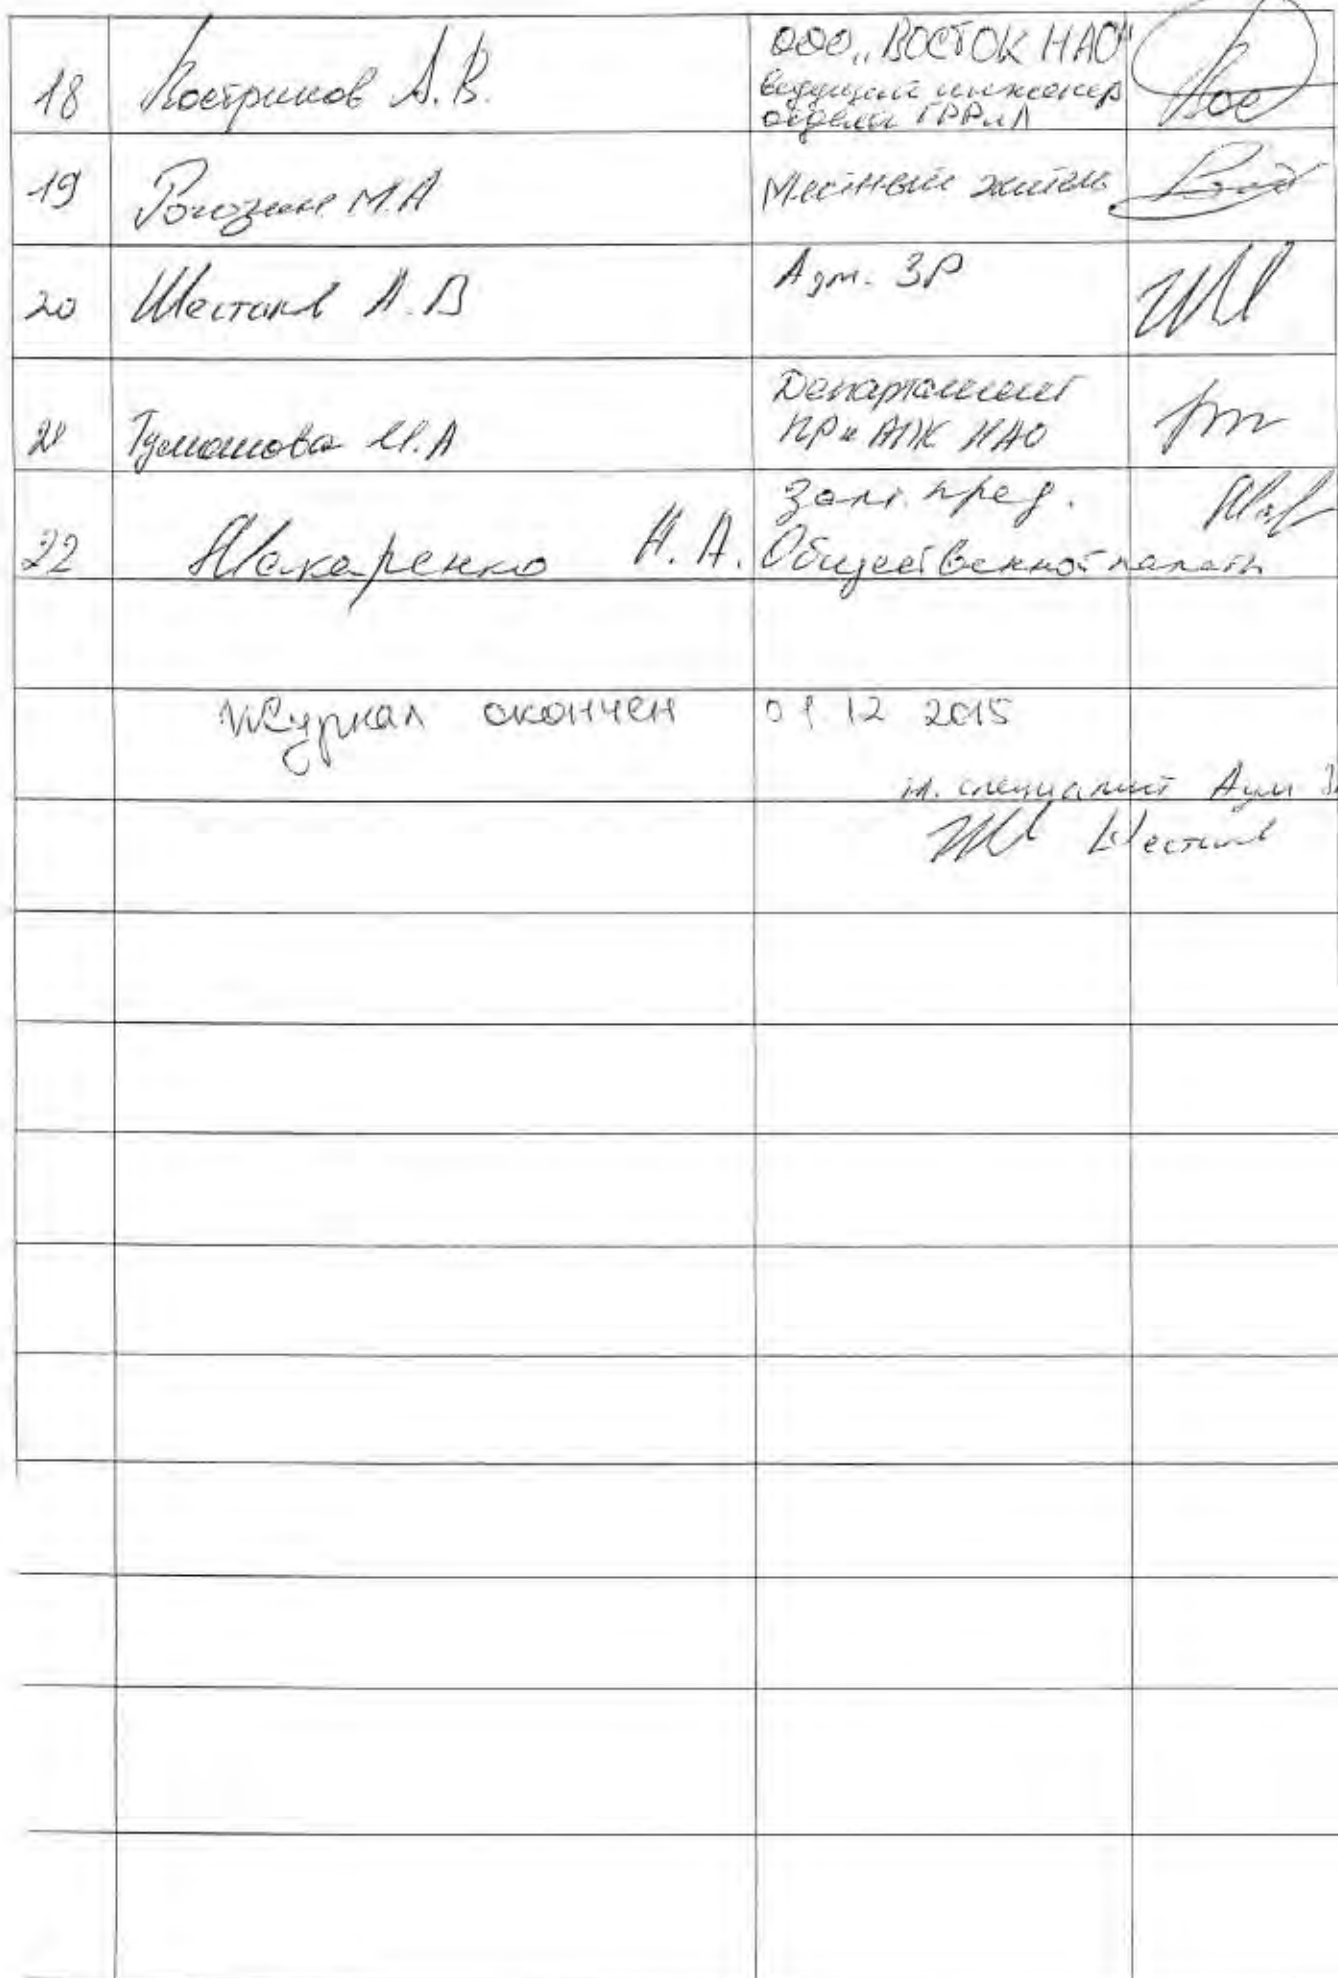 18 Костриков А.В. ООО „ВОСТОК НАО"
ведущий инженер
отдела ГРРиЛ
19 Рогозина М.А Местный житель
20 Шестаков А.В Адм. ЗР
21 Туманова И.А Департамент
ПР и АПК НАО
22 Макаренко Н.А. Зам. пред.
Общественной палаты
Журнал окончен 01 12 2015
гл. специалист Адм
Шестаков